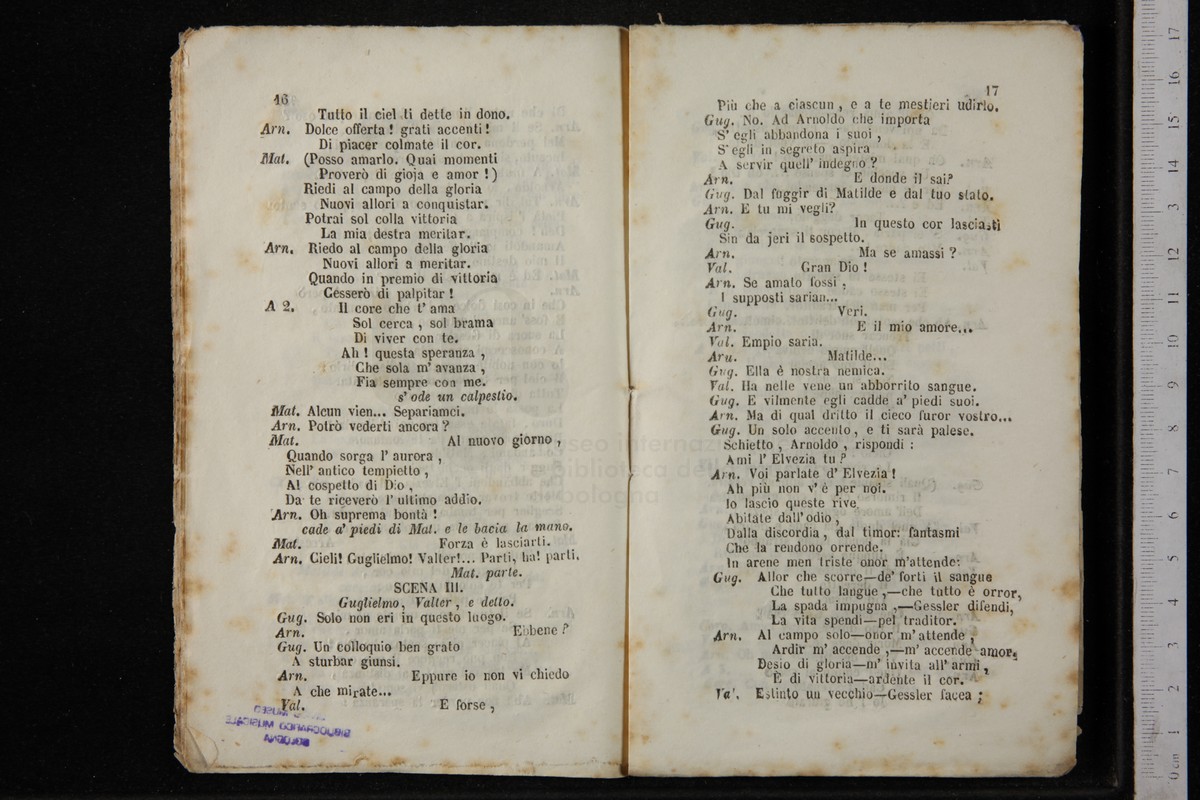 16
Tutto il ciel ti dette in dono.
Arn. Dolce offerta ! grati accenti !
Di piacer colmate il cor.
Mat. (Posso amarlo. Quai momenti
Proverò di gioja e amor !)
Riedi al campo della gloria
Nuovi allori a conquistar.
Potrai sol colla vittoria
La mia destra meritar.
Arn. Riedo al campo della gloria
Nuovi allori a meritar.
Quando in premio di vittoria
Cesserò di palpitar !
A 2. Il core che t' ama
Sol cerca , sol brama
Di viver con te.
Ah ! questa speranza ,
Che sola m' avanza ,
Fia sempre con me.
s' ode un calpestio.
Mat. Alcun vien... Separiamci.
Arn. Potrò vederti ancora ?
Mat. Al nuovo giorno ,
Quando sorga l' aurora ,
Nell' antico tempietto ,
Al cospetto di Dio ,
Da te riceverò l' ultimo addio.
Arn. Oh suprema bontà !
cade a' piedi di Mat. e le bacia la mano.
Mat. Forza è lasciarti.
Arn. Cieli! Guglielmo! Valter!... Parti, ha! parti.
Mat. parte.
SCENA III.
Guglielmo, Valter , e detto.
Gug. Solo non eri in questo luogo.
Arn. Ebbene ?
Gug. Un colloquio ben grato
A sturbar giunsi.
Arn. Eppure io non vi chiedo
A che mirate...
Val. E forse ,
BIBLIOTECA
MUSEO BIBLIOGRAFICO MUSICALE
BOLOGNA
17
Più che a ciascun , e a te mestieri udirlo.
Gug. No. Ad Arnoldo che importa
S' egli abbandona i suoi ,
S' egli in segreto aspira
A servir quell' indegno ?
Arn. E donde il sai?
Gug. Dal fuggir di Matilde e dal tuo stato.
Arn. E tu mi vegli?
Gug. In questo cor lasciasti
Sin da jeri il sospetto.
Arn. Ma se amassi ?
Val. Gran Dio !
Arn. Se amato fossi ,
I supposti sarian...
Gug. Veri.
Arn. E il mio amore...
Val. Empio saria.
Arn. Matilde...
Gug. Ella è nostra nemica.
Val. Ha nelle vene un abborrito sangue.
Gug. E vilmente egli cadde a' piedi suoi.
Arn. Ma di qual dritto il cieco furor vostro...
Gug. Un solo accento, e ti sarà palese.
Schietto , Arnoldo , rispondi :
Ami l' Elvezia tu ?
Arn. Voi parlate d' Elvezia !
Ah più non v' è per noi.
Io lascio queste rive
Abitate dall' odio ,
Dalla discordia , dal timor: fantasmi
Che la rendono orrende.
In arene men triste onor m'attende:
Gug. Allor che scorre—de' forti il sangue
Che tutto langue ,—che tutto è orror,
La spada impugna ,—Gessler difendi,
La vita spendi—pel traditor.
Arn. Al campo solo—onor m' attende ,
Ardir m' accende ,—m' accende amor,
Desio di gloria—m' invita all' armi ,
E di vittoria—ardente il cor.
Val. Estinto un vecchio—Gessler facea ;